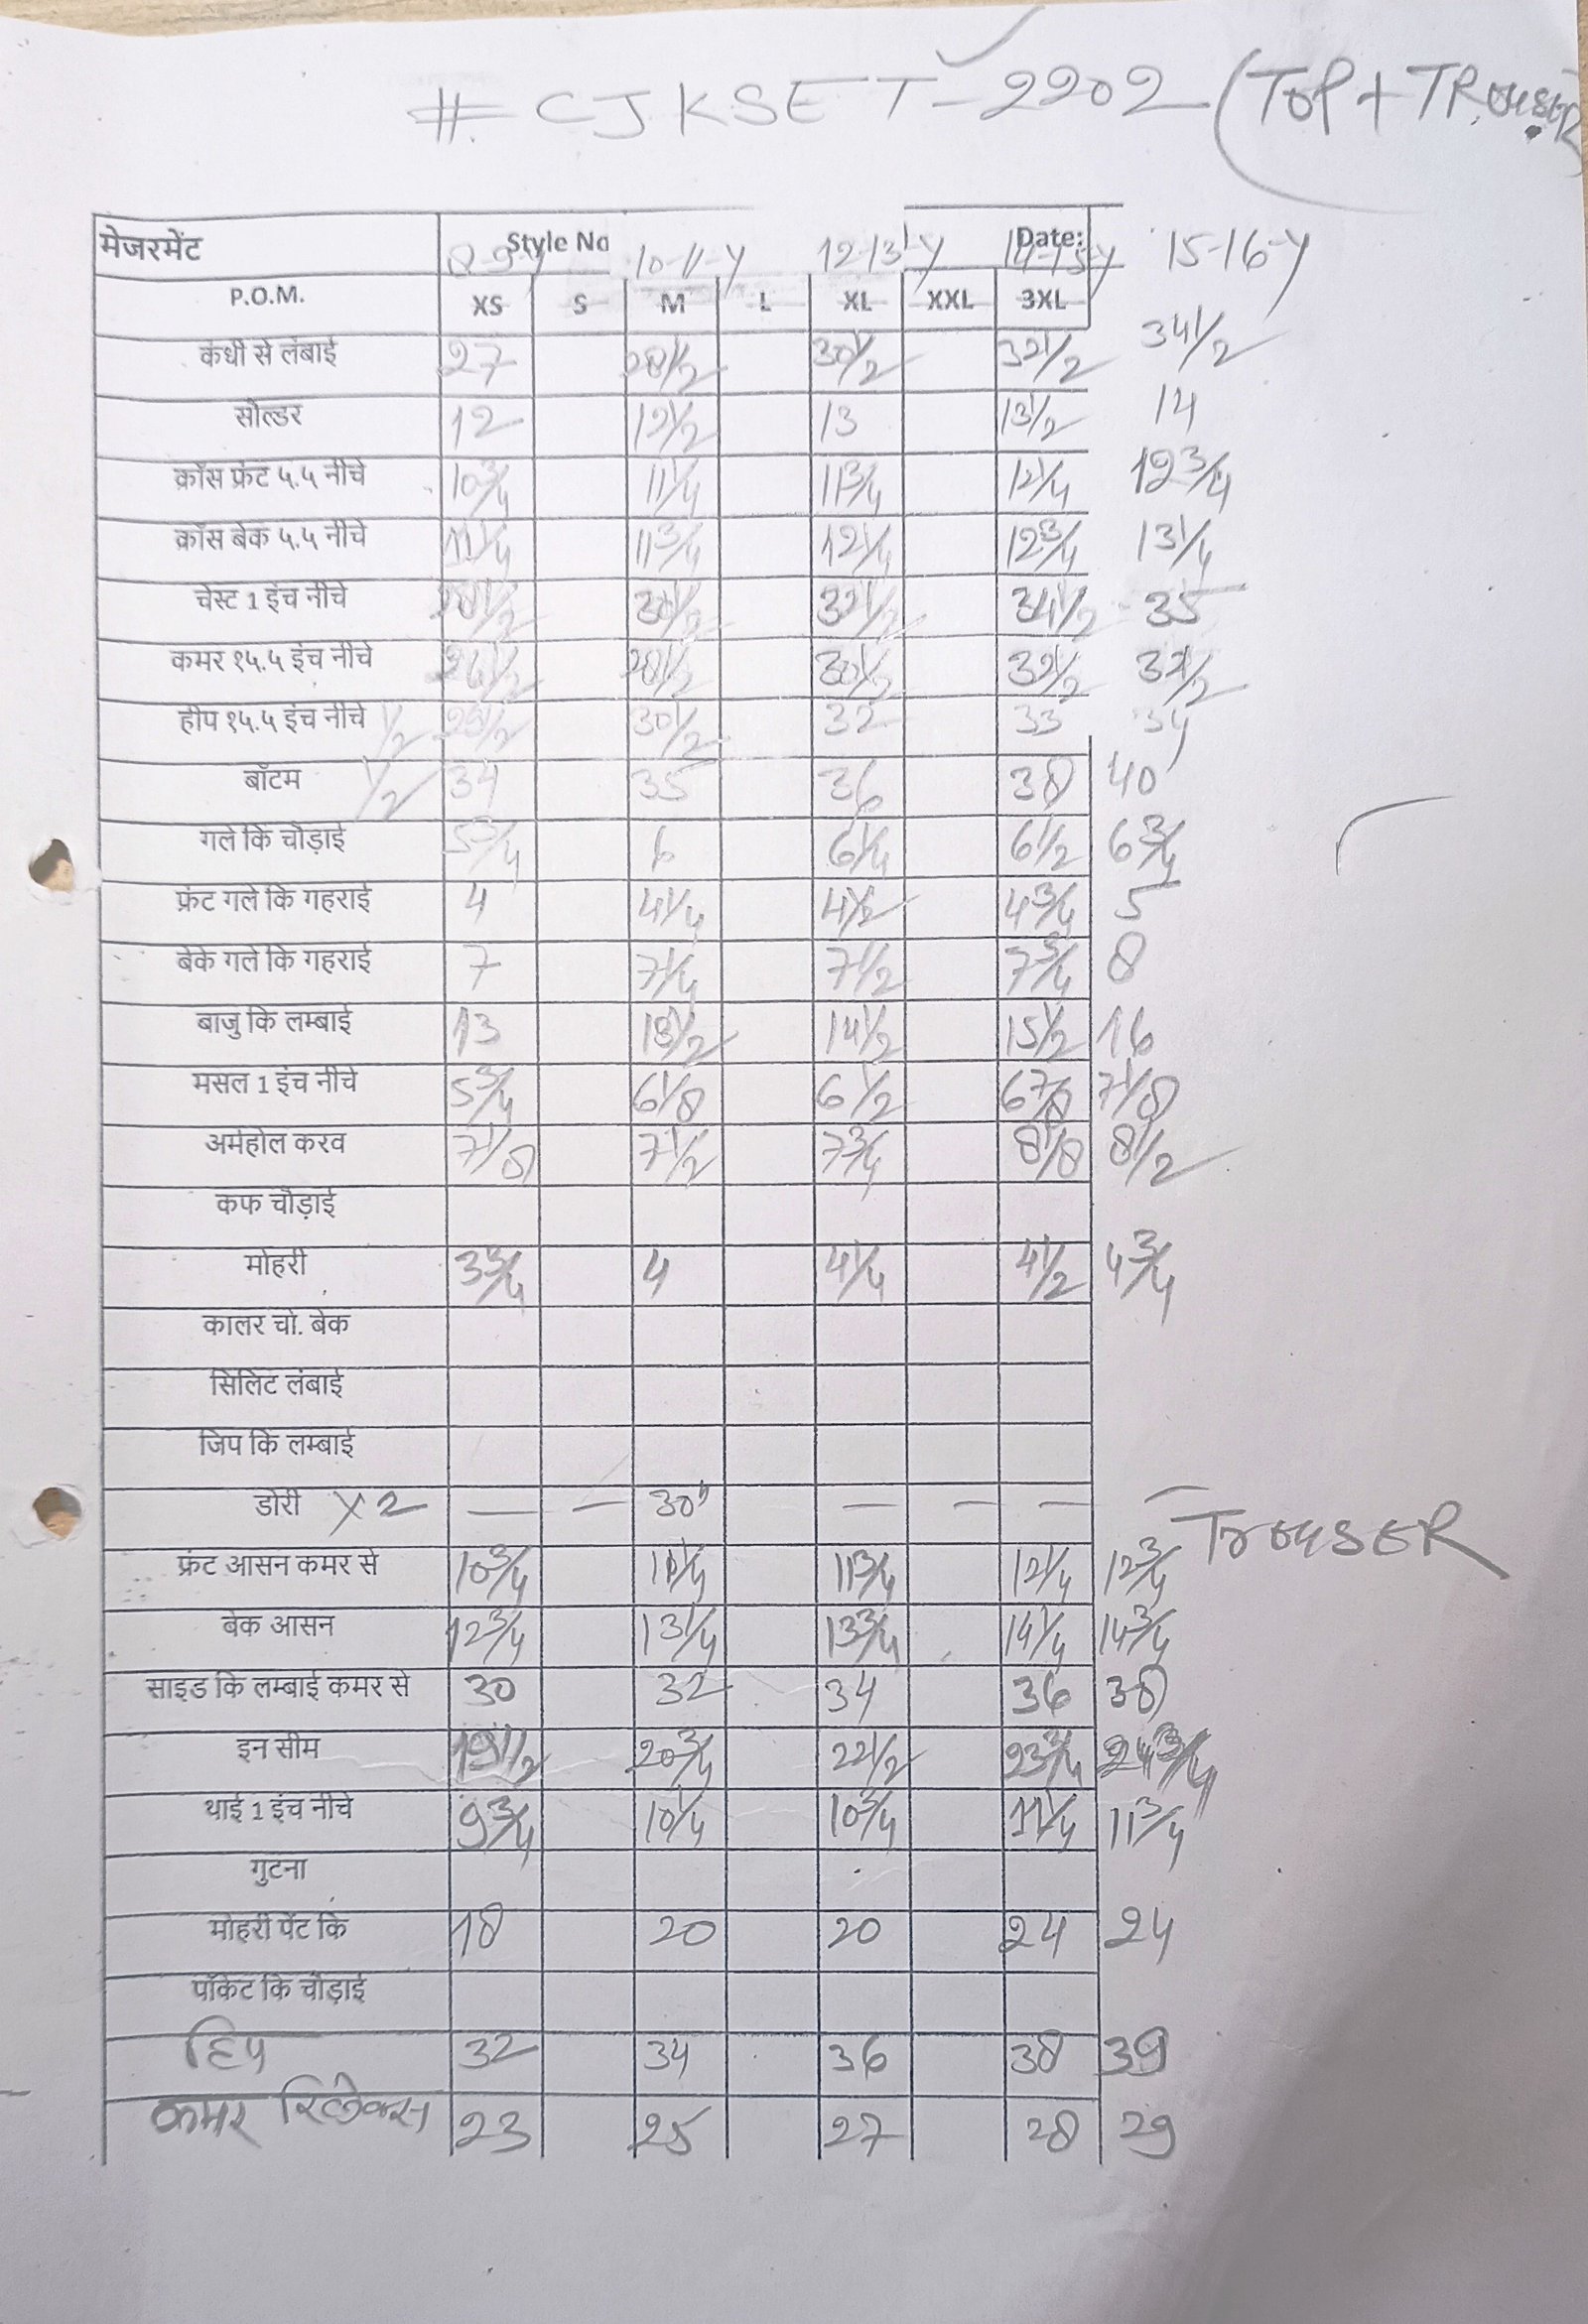 # CJKSET-2202 (TOP + TROUSER
मेजरमेंट Style No Date:
8-9-Y 10-11-Y 12-13-Y 14-15-Y 15-16-Y
P.O.M. XS S M L XL XXL 3XL
कंधी से लंबाई 27 28 1/2 30 1/2 32 1/2 34 1/2
सोल्डर 12 12 1/2 13 13 1/2 14
क्रॉस फ्रंट ५.५ नीचे 10 3/4 11 1/4 11 3/4 12 1/4 12 3/4
क्रॉस बेक ५.५ नीचे 11 1/4 11 3/4 12 1/4 12 3/4 13 1/4
चेस्ट 1 इंच नीचे 28 1/2 30 1/2 32 1/2 34 1/2 35
कमर १५.५ इंच नीचे 26 1/2 28 1/2 30 1/2 32 1/2
हीप १५.५ इंच नीचे 1/2 30 1/2 32 33 34
बॉटम 1/2 34 35 36 38 40
गले कि चौड़ाई 5 3/4 6 6 1/4 6 1/2 6 3/4
फ्रंट गले कि गहराई 4 4 1/4 4 1/2 4 3/4 5
बेके गले कि गहराई 7 7 1/4 7 1/2 7 3/4 8
बाजु कि लम्बाई 13 13 1/2 14 1/2 15 1/2 16
मसल 1 इंच नीचे 5 3/4 6 1/8 6 1/2 6 7/8 7 1/8
अर्महोल करव 7 1/8 7 1/2 7 3/4 8 1/8 8 1/2
कफ चौड़ाई
मोहरी 3 3/4 4 4 1/4 4 1/2 4 3/4
कालर चो. बेक
सिलिट लंबाई
जिप कि लम्बाई
डोरी X 2 — — 30" — — — —
TROUSER
फ्रंट आसन कमर से 10 3/4 11 1/4 11 3/4 12 1/4 12 3/4
बेक आसन 12 3/4 13 1/4 13 3/4 14 1/4 14 3/4
साइड कि लम्बाई कमर से 30 32 34 36 38
इन सीम 19 1/2 20 3/4 22 1/2 23 3/4 24 3/4
थाई 1 इंच नीचे 9 3/4 10 1/4 10 3/4 11 1/4 11 3/4
गुटना
मोहरी पेंट कि 18 20 20 24 24
पॉकेट कि चौड़ाई
हिप 32 34 36 38 39
कमर रिलेक्स 23 25 27 28 29